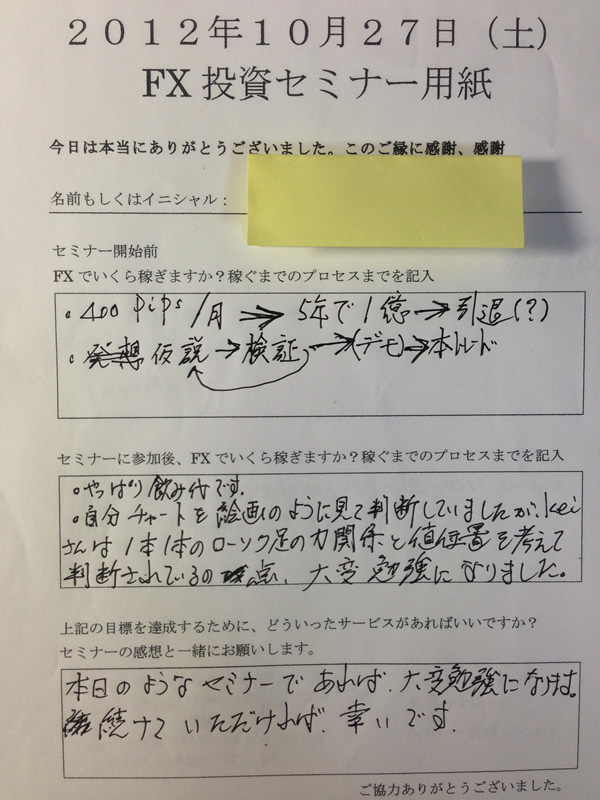 ２０１２年１０月２７日（土）
FX 投資セミナー用紙
今日は本当にありがとうございました。このご縁に感謝、感謝
名前もしくはイニシャル：
セミナー開始前
FXでいくら稼ぎますか？稼ぐまでのプロセスまでを記入
・400 pips/月 ⇒ 5年で1億→引退(?)
・仮説→検証→(デモ)→本トレード
セミナーに参加後、FXでいくら稼ぎますか？稼ぐまでのプロセスまでを記入
・やっぱり飲み代です。
・自分チャートを絵画のように見て判断していましたが、kei
さんは1本1本のローソク足の力関係と値位置を考えて
判断されているの点、大変勉強になりました。
上記の目標を達成するために、どういったサービスがあればいいですか？
セミナーの感想と一緒にお願いします。
本日のようなセミナーであれば、大変勉強になります。
続けていただければ、幸いです。
ご協力ありがとうございました。